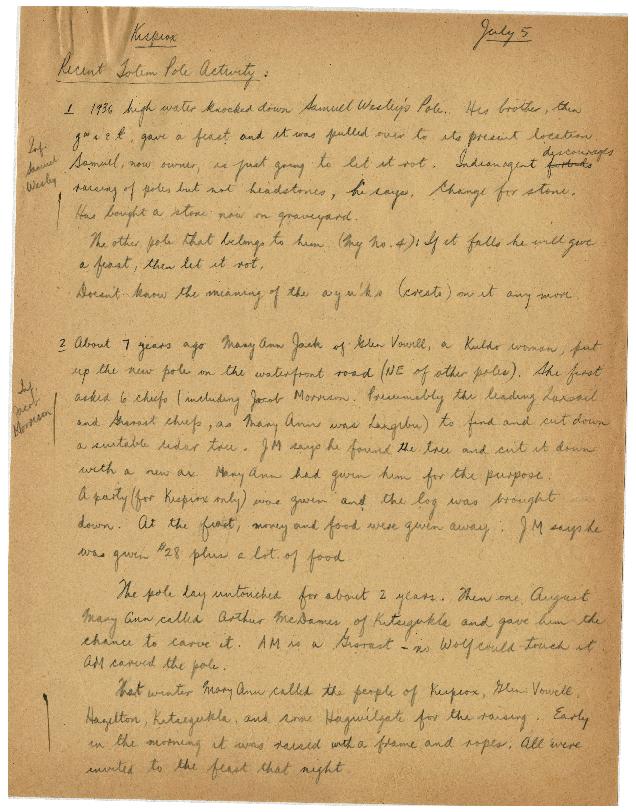 Kispiox
July 5
Recent Totem Pole Activity:
1 1936 high water knocked down Samuel Wesley's Pole. His brother, then
gave a feast and it was pulled over to its present location
Inf. Samuel Wesley
discourages
Samuel, now owner, is just going to let it rot. Indian agent forbids
raising of poles but not headstones, he says. Change for stone.
Has bought a stone now on graveyard.
The other pole that belongs to him (My No. 4): If it falls he will give
a feast, then let it rot.
Doesn't know the meaning of the (crests) on it any more.
2 About 7 years ago Mary Ann Jack of Glen Vowell, a Kuldo woman, put
up the new pole on the waterfront road (NE of other poles). She first
Inf. Jacob Morrison
asked 6 chiefs (including Jacob Morrison. Presumably the leading
and chiefs, as Mary Ann was ) to find and cut down
a suitable cedar tree. JM says he found the tree and cut it down
with a new ax Mary Ann had given him for the purpose.
A party (for Kispiox only) was given and the log was brought
down. At the feast, money and food were given away. JM says he
was given $28 plus a lot of food
The pole lay untouched for about 2 years. Then one August
Mary Ann called Arthur McDames of Kitsegukla and gave him the
chance to carve it. AM is a – no Wolf could touch it
AM carved the pole.
That winter Mary Ann called the people of Kispiox, Glen Vowell,
Hazelton, Kitsegukla, and some Hagwilgate for the raising. Early
in the morning it was raised with a frame and ropes. All were
invited to the feast that night.